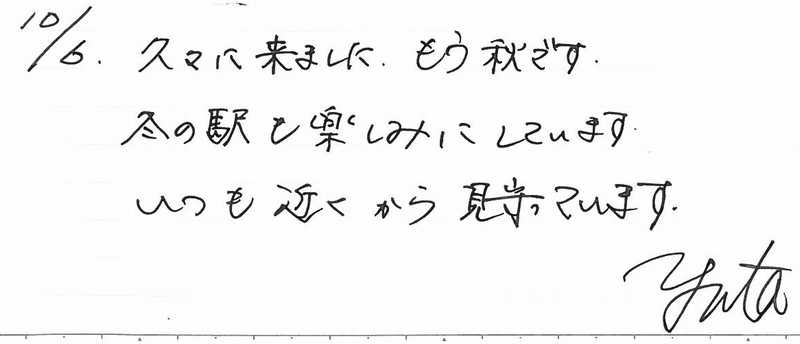 10/6. 久々に来ました. もう秋です.
冬の駅も楽しみにしています
いつも近くから見守っています.
Yuta